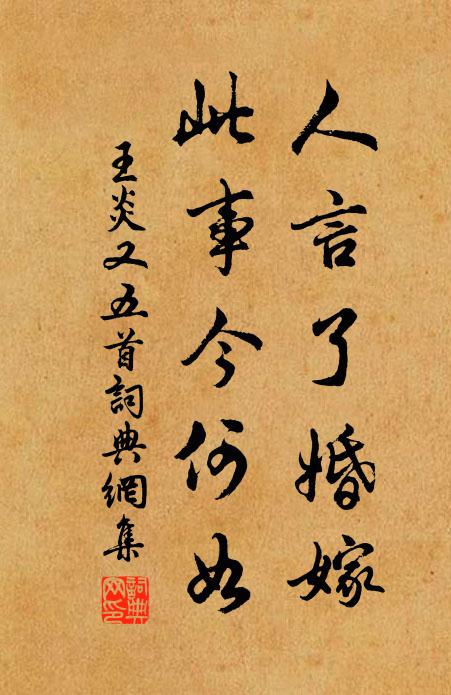 人言了婚嫁
此事今何如
王炎又五首詞典網集
詞典网印